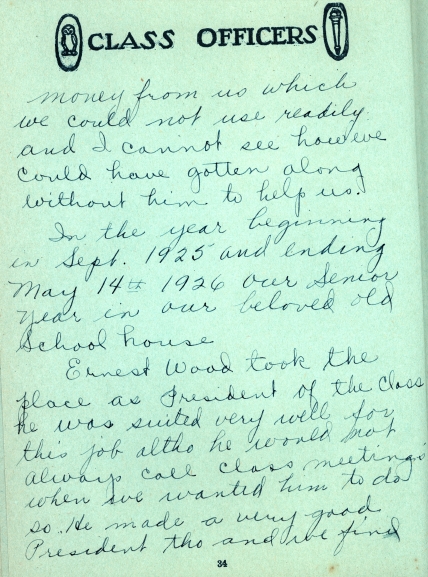 CLASS OFFICERS
money from us which
we could not use readily
and I cannot see how we
could have gotten along
without him to help us.
In the year beginning
in Sept. 1925 and ending
May 14th 1926 our Senior
year in our beloved old
School house
Ernest Wood took the
place as President of the Class
he was suited very well for
this job altho he would not
always call class meetings
when we wanted him to do
so. He made a very good
President tho and we find
34